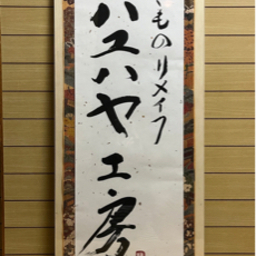 きものリメイク
ハユハヤ工房